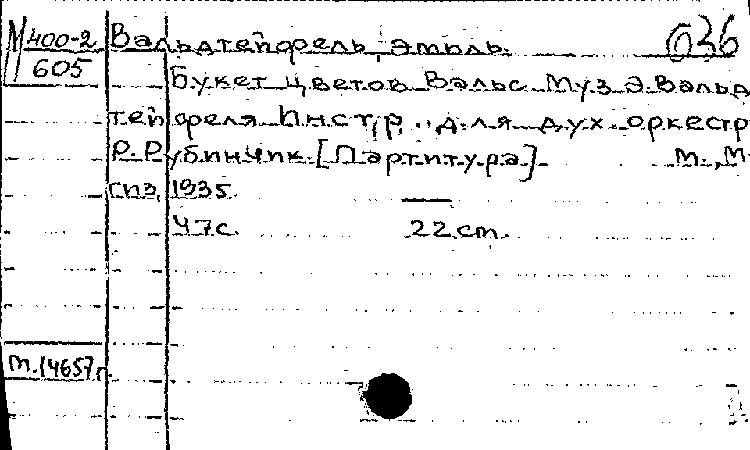 М 400-2
605
Вальдтейфель, Эмиль.
036
Букет цветов Вальс Муз Э. Вальд
тейфеля Инстр. для дух. оркестр
Р. Рубинчик. [Партитура]. М., М
гиз, 1935.
47 с. 22 cm.
т. 14657 г.